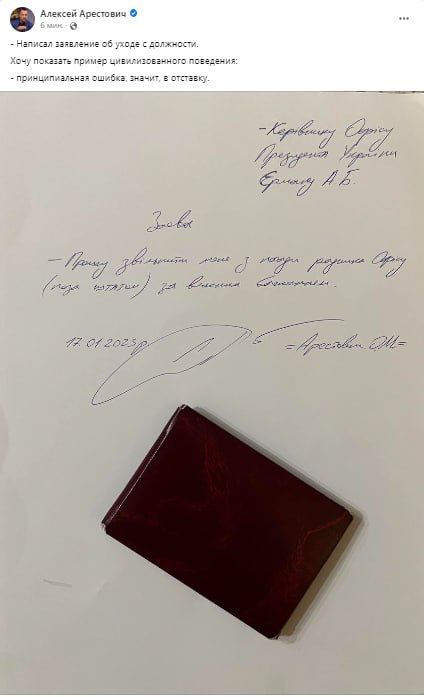 Алексей Арестович
6 мин. ·
- Написал заявление об уходе с должности.
Хочу показать пример цивилизованного поведения:
- принципиальная ошибка, значит, в отставку.
- Керівнику Офісу
Президента України
Єрмаку А.Б.
Заява
- Прошу звільнити мене з посади радника Офісу
(поза штатом) за власним бажанням.
17.01.2023р
=Арестович О.М.=